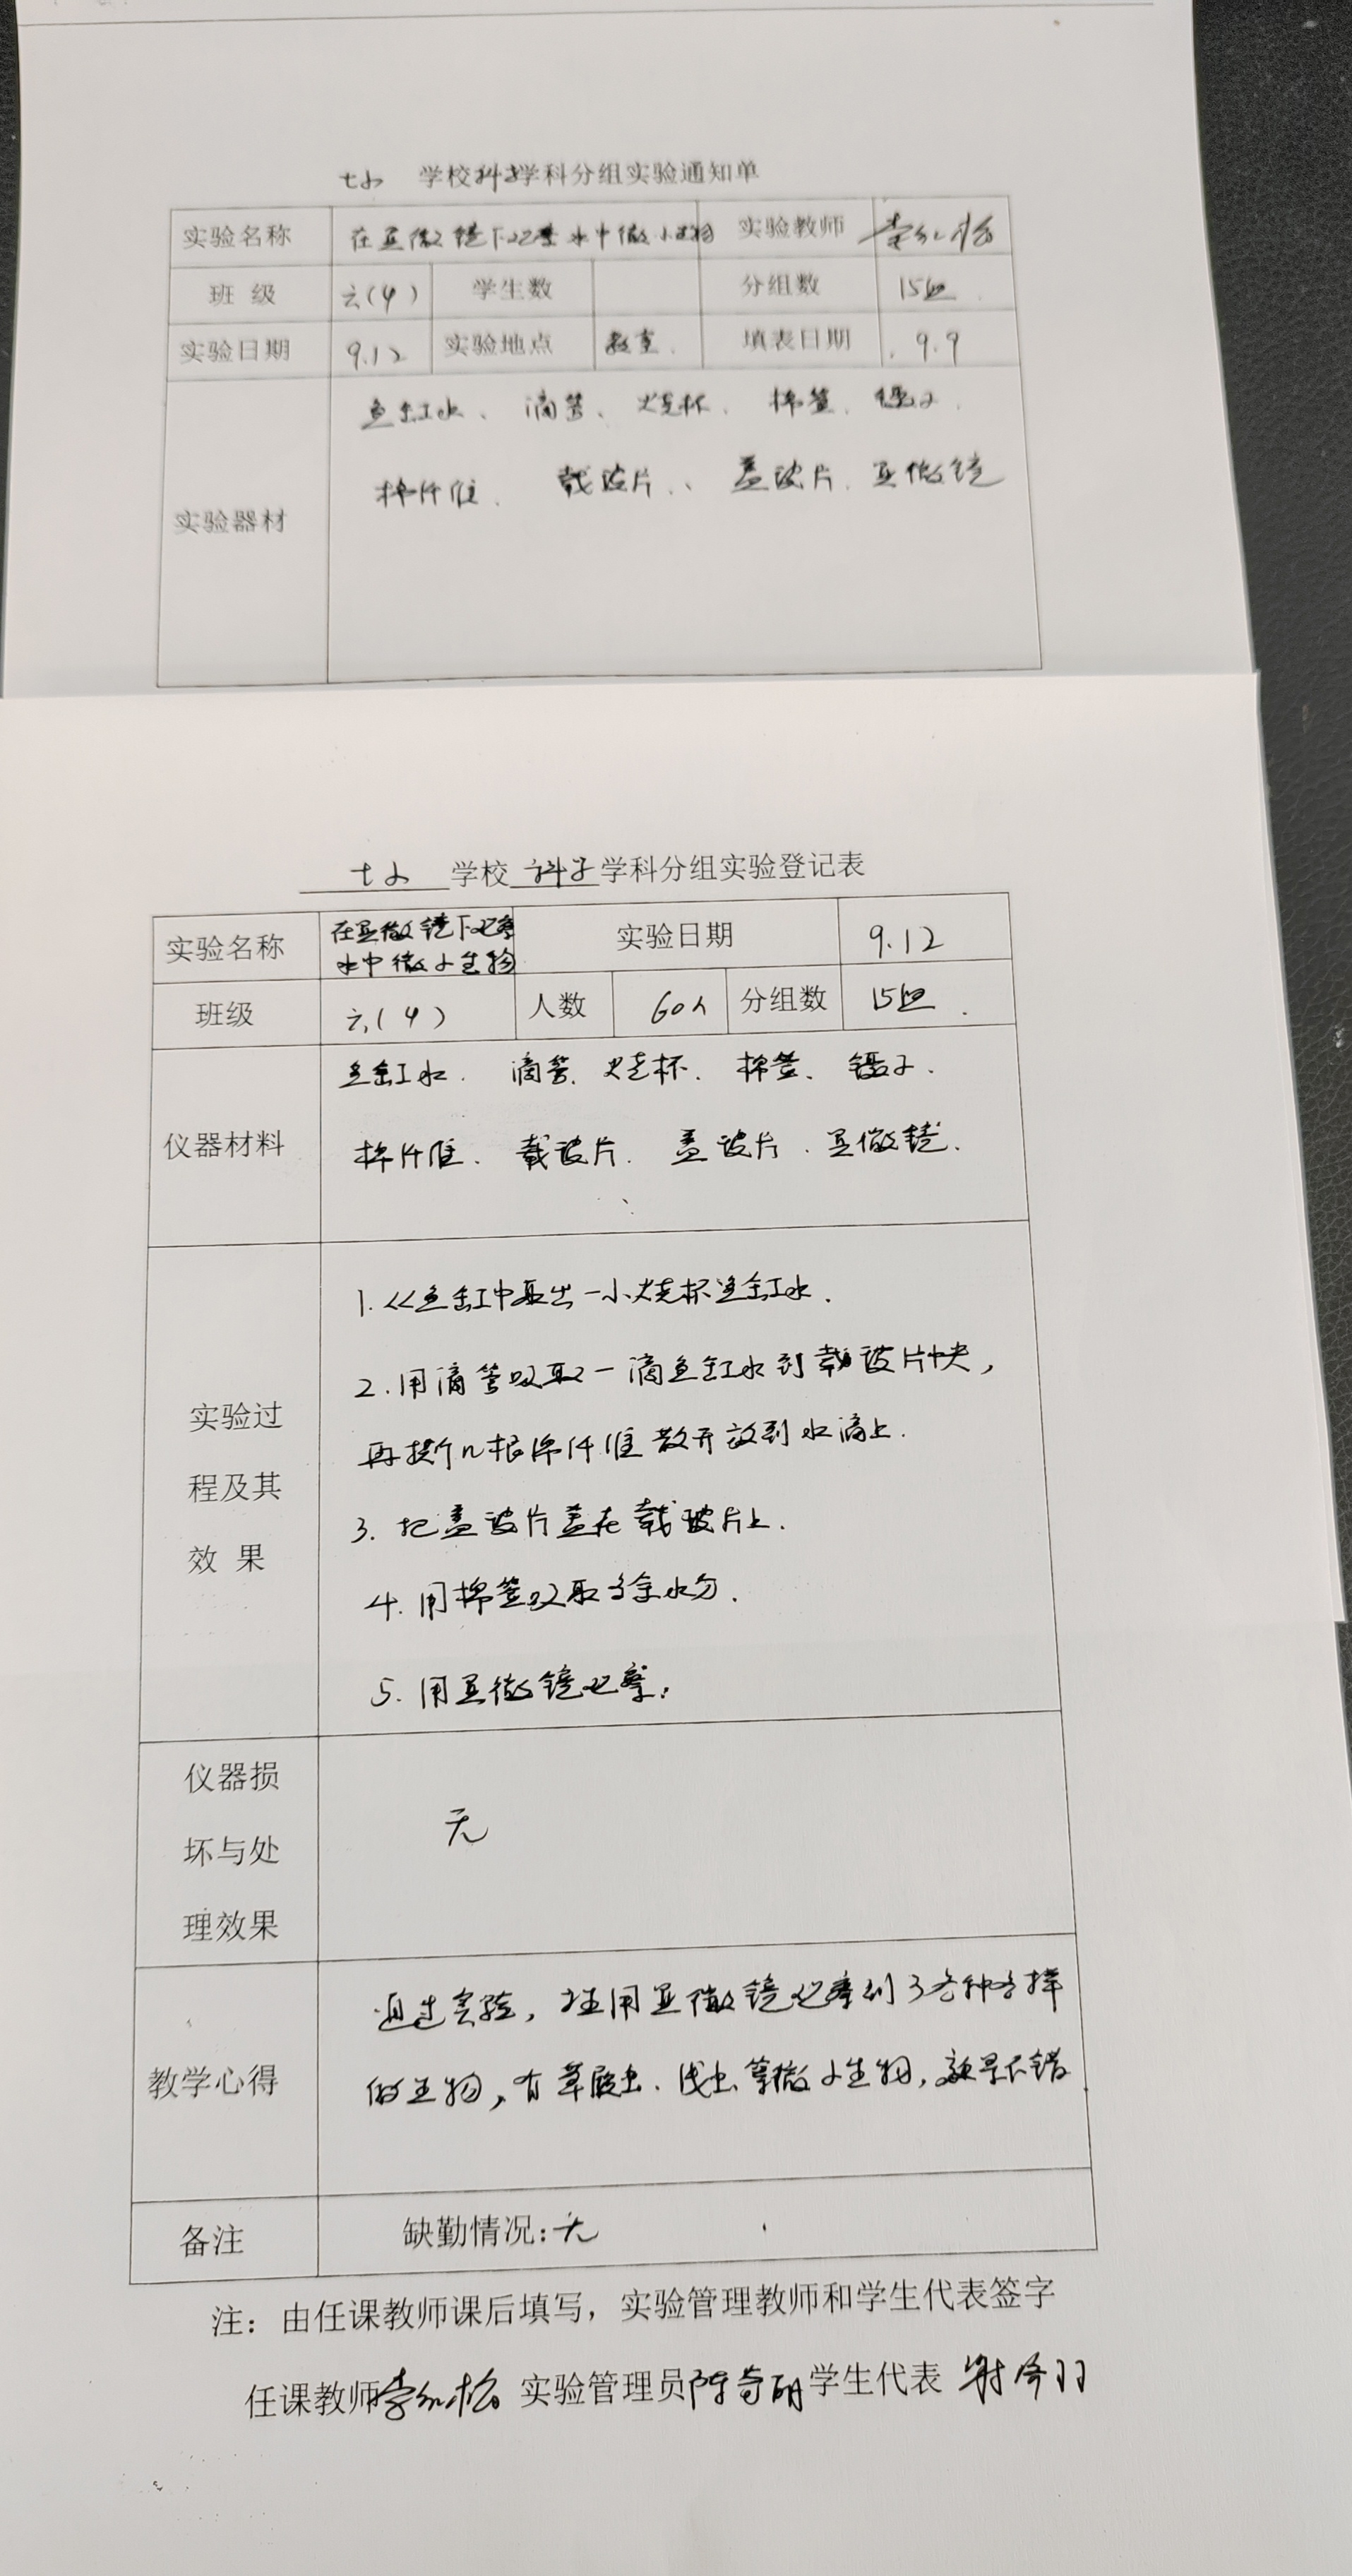 七小 学校科学学科分组实验通知单
实验名称 在显微镜下观察水中微小生物 实验教师
班 级 六(4) 学生数 分组数 15组
实验日期 9.12 实验地点 教室. 填表日期 9.9
鱼缸水、滴管、烧杯、棉签、镊子.
棉纤维、载玻片、盖玻片、显微镜
实验器材
七小 学校 科学 学科分组实验登记表
实验名称 在显微镜下观察 实验日期 9.12
水中微小生物
班级 六(4) 人数 60人 分组数 15组.
鱼缸水. 滴管. 烧杯. 棉签、镊子.
仪器材料 棉纤维、载玻片. 盖玻片. 显微镜.
1.从鱼缸中取出一小烧杯鱼缸水.
2.用滴管吸取一滴鱼缸水到载玻片中央,
实验过
再撕几根棉纤维散开放到水滴上.
程及其
3. 把盖玻片盖在载玻片上.
效 果
4. 用棉签吸取多余水分.
5. 用显微镜观察.
仪器损
坏与处 无
理效果
通过实验, 在用显微镜观察到了各种各样
教学心得 的生物, 有草履虫、线虫等微小生物, 效果不错
备注 缺勤情况:无
注: 由任课教师课后填写, 实验管理教师和学生代表签字
任课教师 实验管理员 学生代表